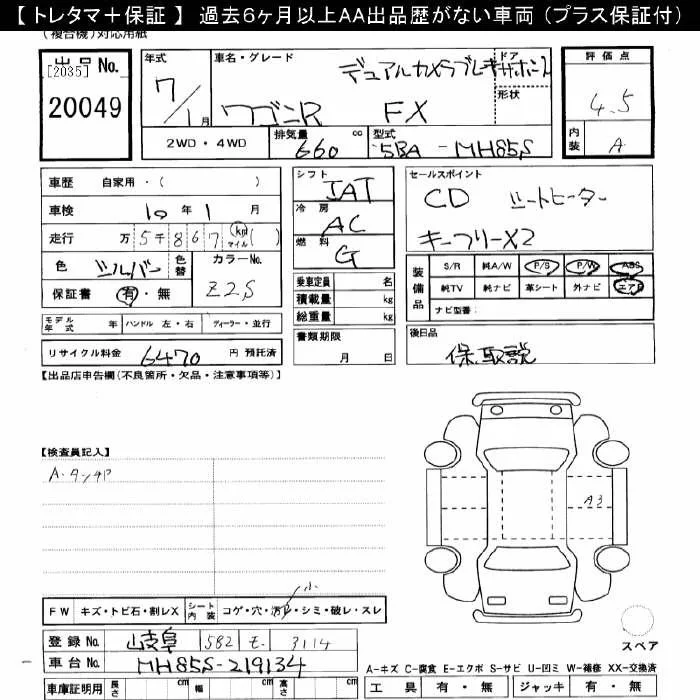 【 トレタマ＋保証 】 過去6ヶ月以上AA出品歴がない車両（プラス保証付）
（複合機）対応用紙
出品No. [2035] 20049
年式 7/1月
車名・グレード デュアルカメラブレーキサポート
ワゴンR FX
ドア 形状
評価点 4.5
内装 A
2WD・4WD
排気量 660 cc
型式 5BA-MH85S
車歴 自家用・( )
車検 10年1月
走行 万5千867 km マイル ( )
色 シルバー 色替 カラーNo. Z2S
保証書 有・無
モデル年式 年 ハンドル 左・右 ディーラー・並行
リサイクル料金 6470 円 預託済
シフト IAT
冷房 AC
燃料 G
乗車定員 名
積載量 kg
総重量 kg
書類期限 月 日
セールスポイント
CD シートヒーター
キーフリーX2
装備品 S/R 純A/W P/S P/W ABS
純TV 純ナビ 革シート 外ナビ エアB
ナビ型番:
後日品
保、取説
【出品店申告欄(不良箇所・欠品・注意事項等)】
【検査員記入】
A・タッチP
A3
FW キズ・トビ石・割レX シート内装 コゲ・穴・汚レ・シミ・破レ・スレ
小
スペア
登録No. 岐阜 582 そ 3114
車台No. MH85S-219134
車庫証明用 長さ cm 幅 cm 高さ cm
A-キズ C-腐食 E-エクボ S-サビ U-凹ミ W-補修 XX-交換済
工具 有・無 ジャッキ 有・無